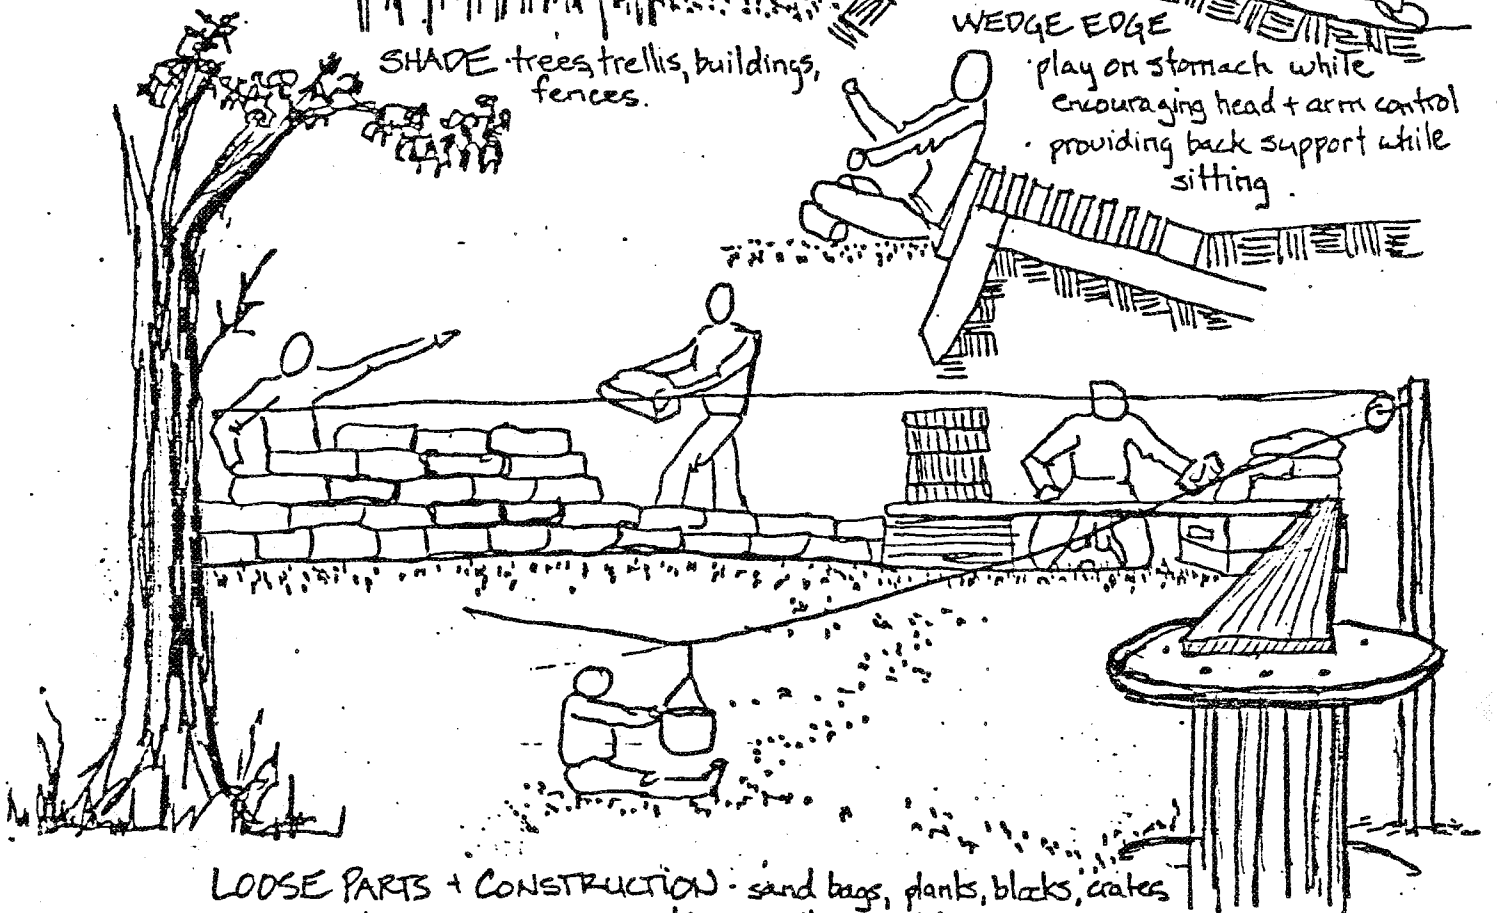 SHADE · trees, trellis, buildings,
fences.
WEDGE EDGE
· play on stomach while
encouraging head + arm control
· providing back support while
sitting.
LOOSE PARTS + CONSTRUCTION · sand bags, planks, blocks, crates